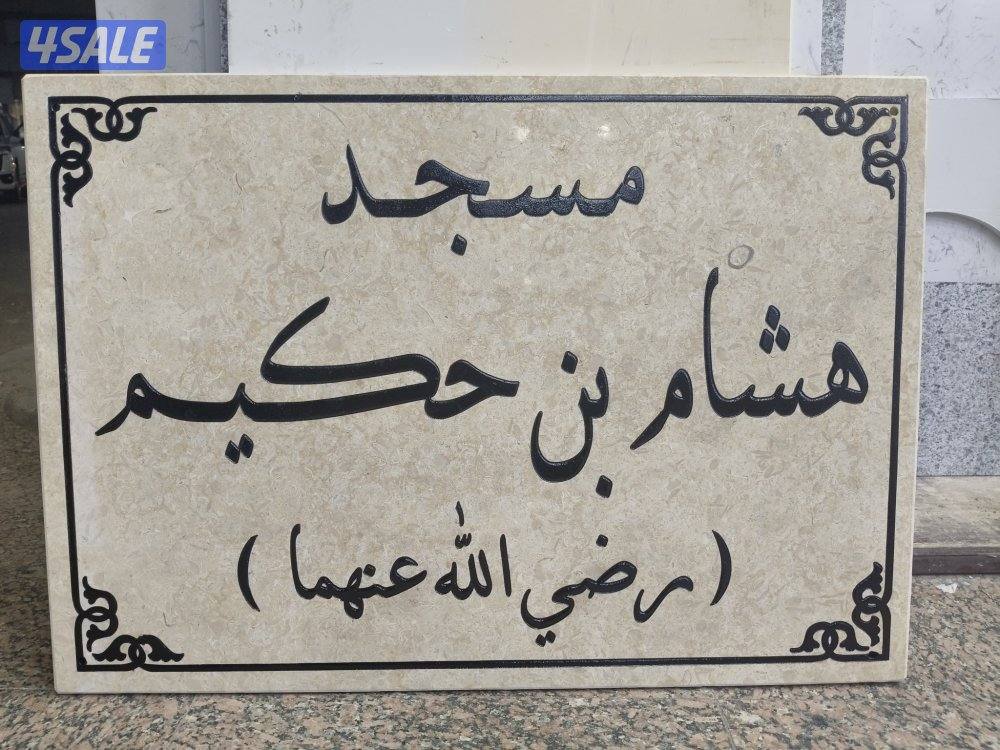 4SALE
مسجد
هشام بن حكيم
(رضي الله عنهما)